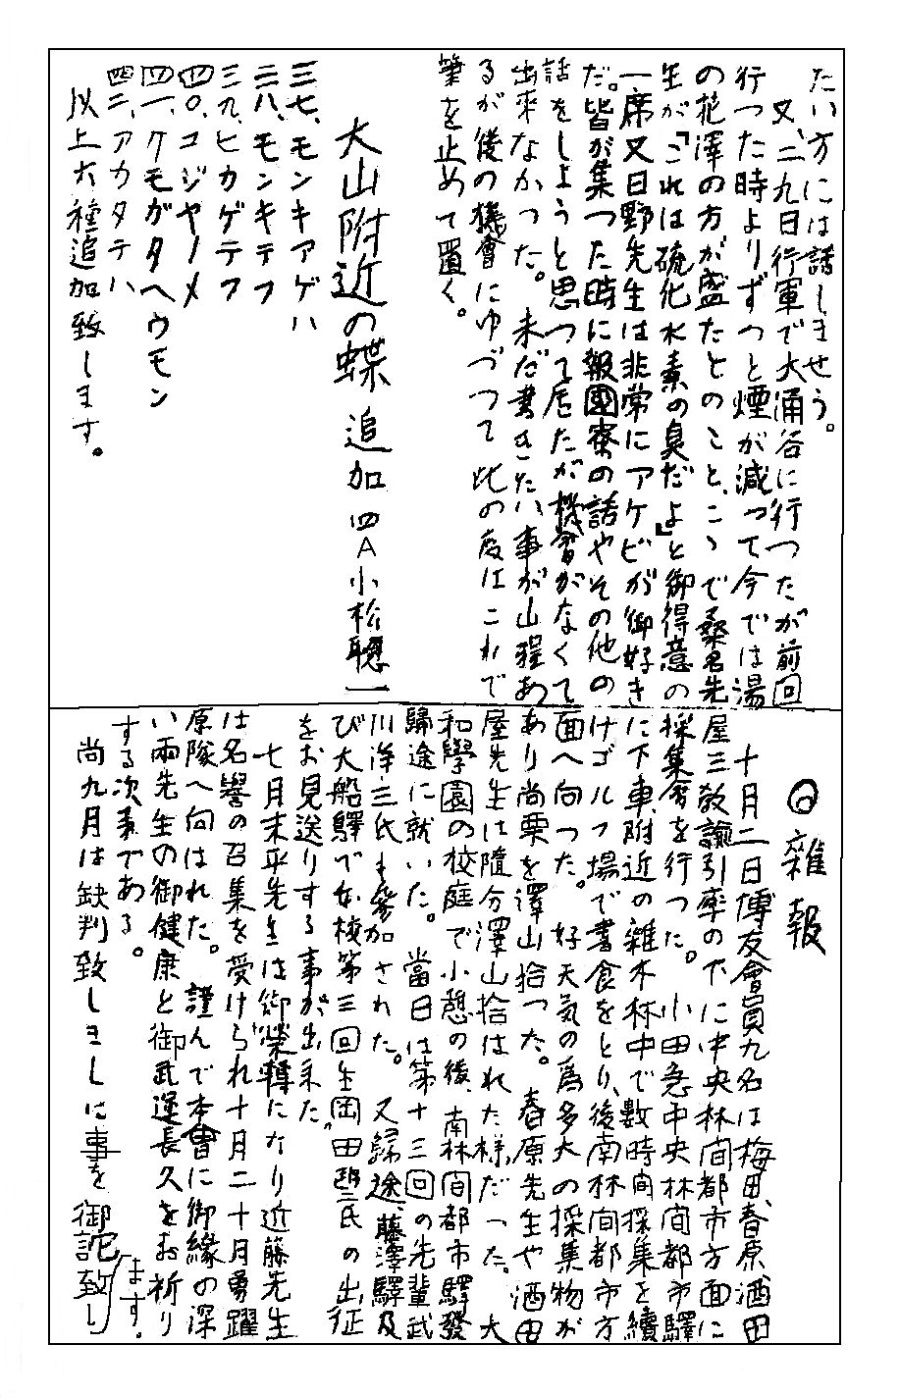 たい方には話しませう。
又、二九日行軍で大涌谷に行つたが前回
行つた時よりずつと煙が減つて今では湯
の花澤の方が盛たとのこと、こゝで桑名先
生が『これは硫化水素の臭だよ』と御得意の
一席又日野先生は非常にアケビが御好き
だ。皆が集つた時に報國寮の話やその他の
話をしようと思つて居たが機會がなくて
出來なかつた。未だ書きたい事が山程あ
るが後の機會にゆづつて此の度はこれで
筆を止めて置く。
大山附近の蝶 追加 四A小松聰一
三七、モンキアゲハ
三八、モンキテフ
三九、ヒカゲテフ
四〇、コジヤノメ
四一、クモガタヘウモン
四二、アカタテハ
以上六種追加致します。
◎雜報
十月二日博友會員九名は梅田、春原酒田
屋三教諭引率の下に中央林間都市方面に
採集會を行つた。小田急中央林間都市驛
に下車附近の雜木林中で數時間採集を續
けゴルフ場で晝食をとり、後南林間都市方
面へ向つた。好天氣の爲多大の採集物が
あり尚栗を澤山拾つた。春原先生や酒田
屋先生は隨分澤山拾はれた樣だつた。大
和學園の校庭で小憩の後、南林間都市驛發
歸途に就いた。當日は第十三回の先輩武
川洋三氏も參加された。又歸途、藤澤驛及
び大船驛で本校第三回生岡田氏の出征
をお見送りする事が出来た。
七月末平先生は御榮轉になり近藤先生
は名譽の召集を受けられ十月二十月勇躍
原隊へ向はれた。謹んで本會に御緣の深
い兩先生の御健康と御武運長久をお祈り
する次第である。
尚九月は缺判致しましに事を御詫致し
ます。